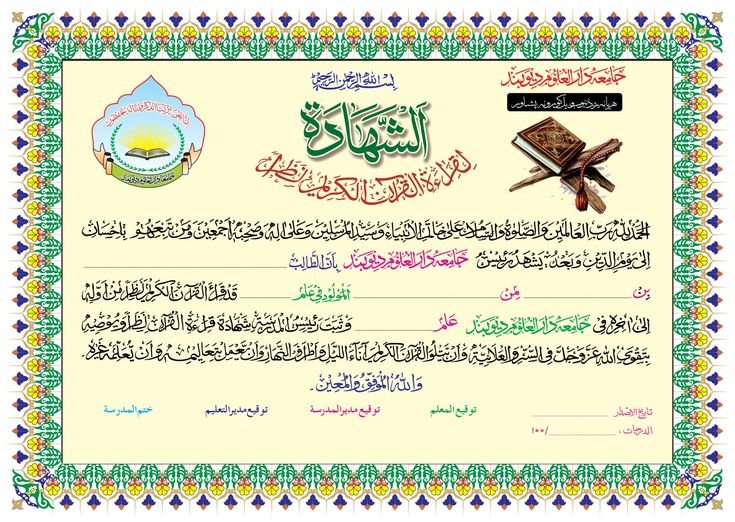 بسم الله الرحمن الرحيم
جامعه دار العلوم ديوبند
الشهادة
لقراءة القرآن الكريم نظراً
الحمد لله رب العالمين والصلوة والسلام على خاتم الأنبياء وسيد المرسلين وعلى اله وصحبه أجمعين ومن تبعهم بإحسان
إلى يوم الدين وبعد: يشهد رئيس جامعه دار العلوم ديوبند بأن الطالب
بن من المولود في عام قد قرأ القرآن الكريم نظراً من أوله
إلى آخره في جامعه دار العلوم ديوبند عام وثبت رئيس المدرسة شهادة قراءة القرآن نظراً ونوصيه
بتقوى الله عز وجل في السر والعلانية وأن يتلو القرآن الكريم آناء الليل وأطراف النهار وأن يعمل بتعاليمه وأن يعلمه غيره.
والله الموفق والمعين.
تاريخ الاصدار
الدرجات : /١٠٠
توقيع المعلم
توقيع مدير المدرسة
توقيع مدير التعليم
ختم المدرسة